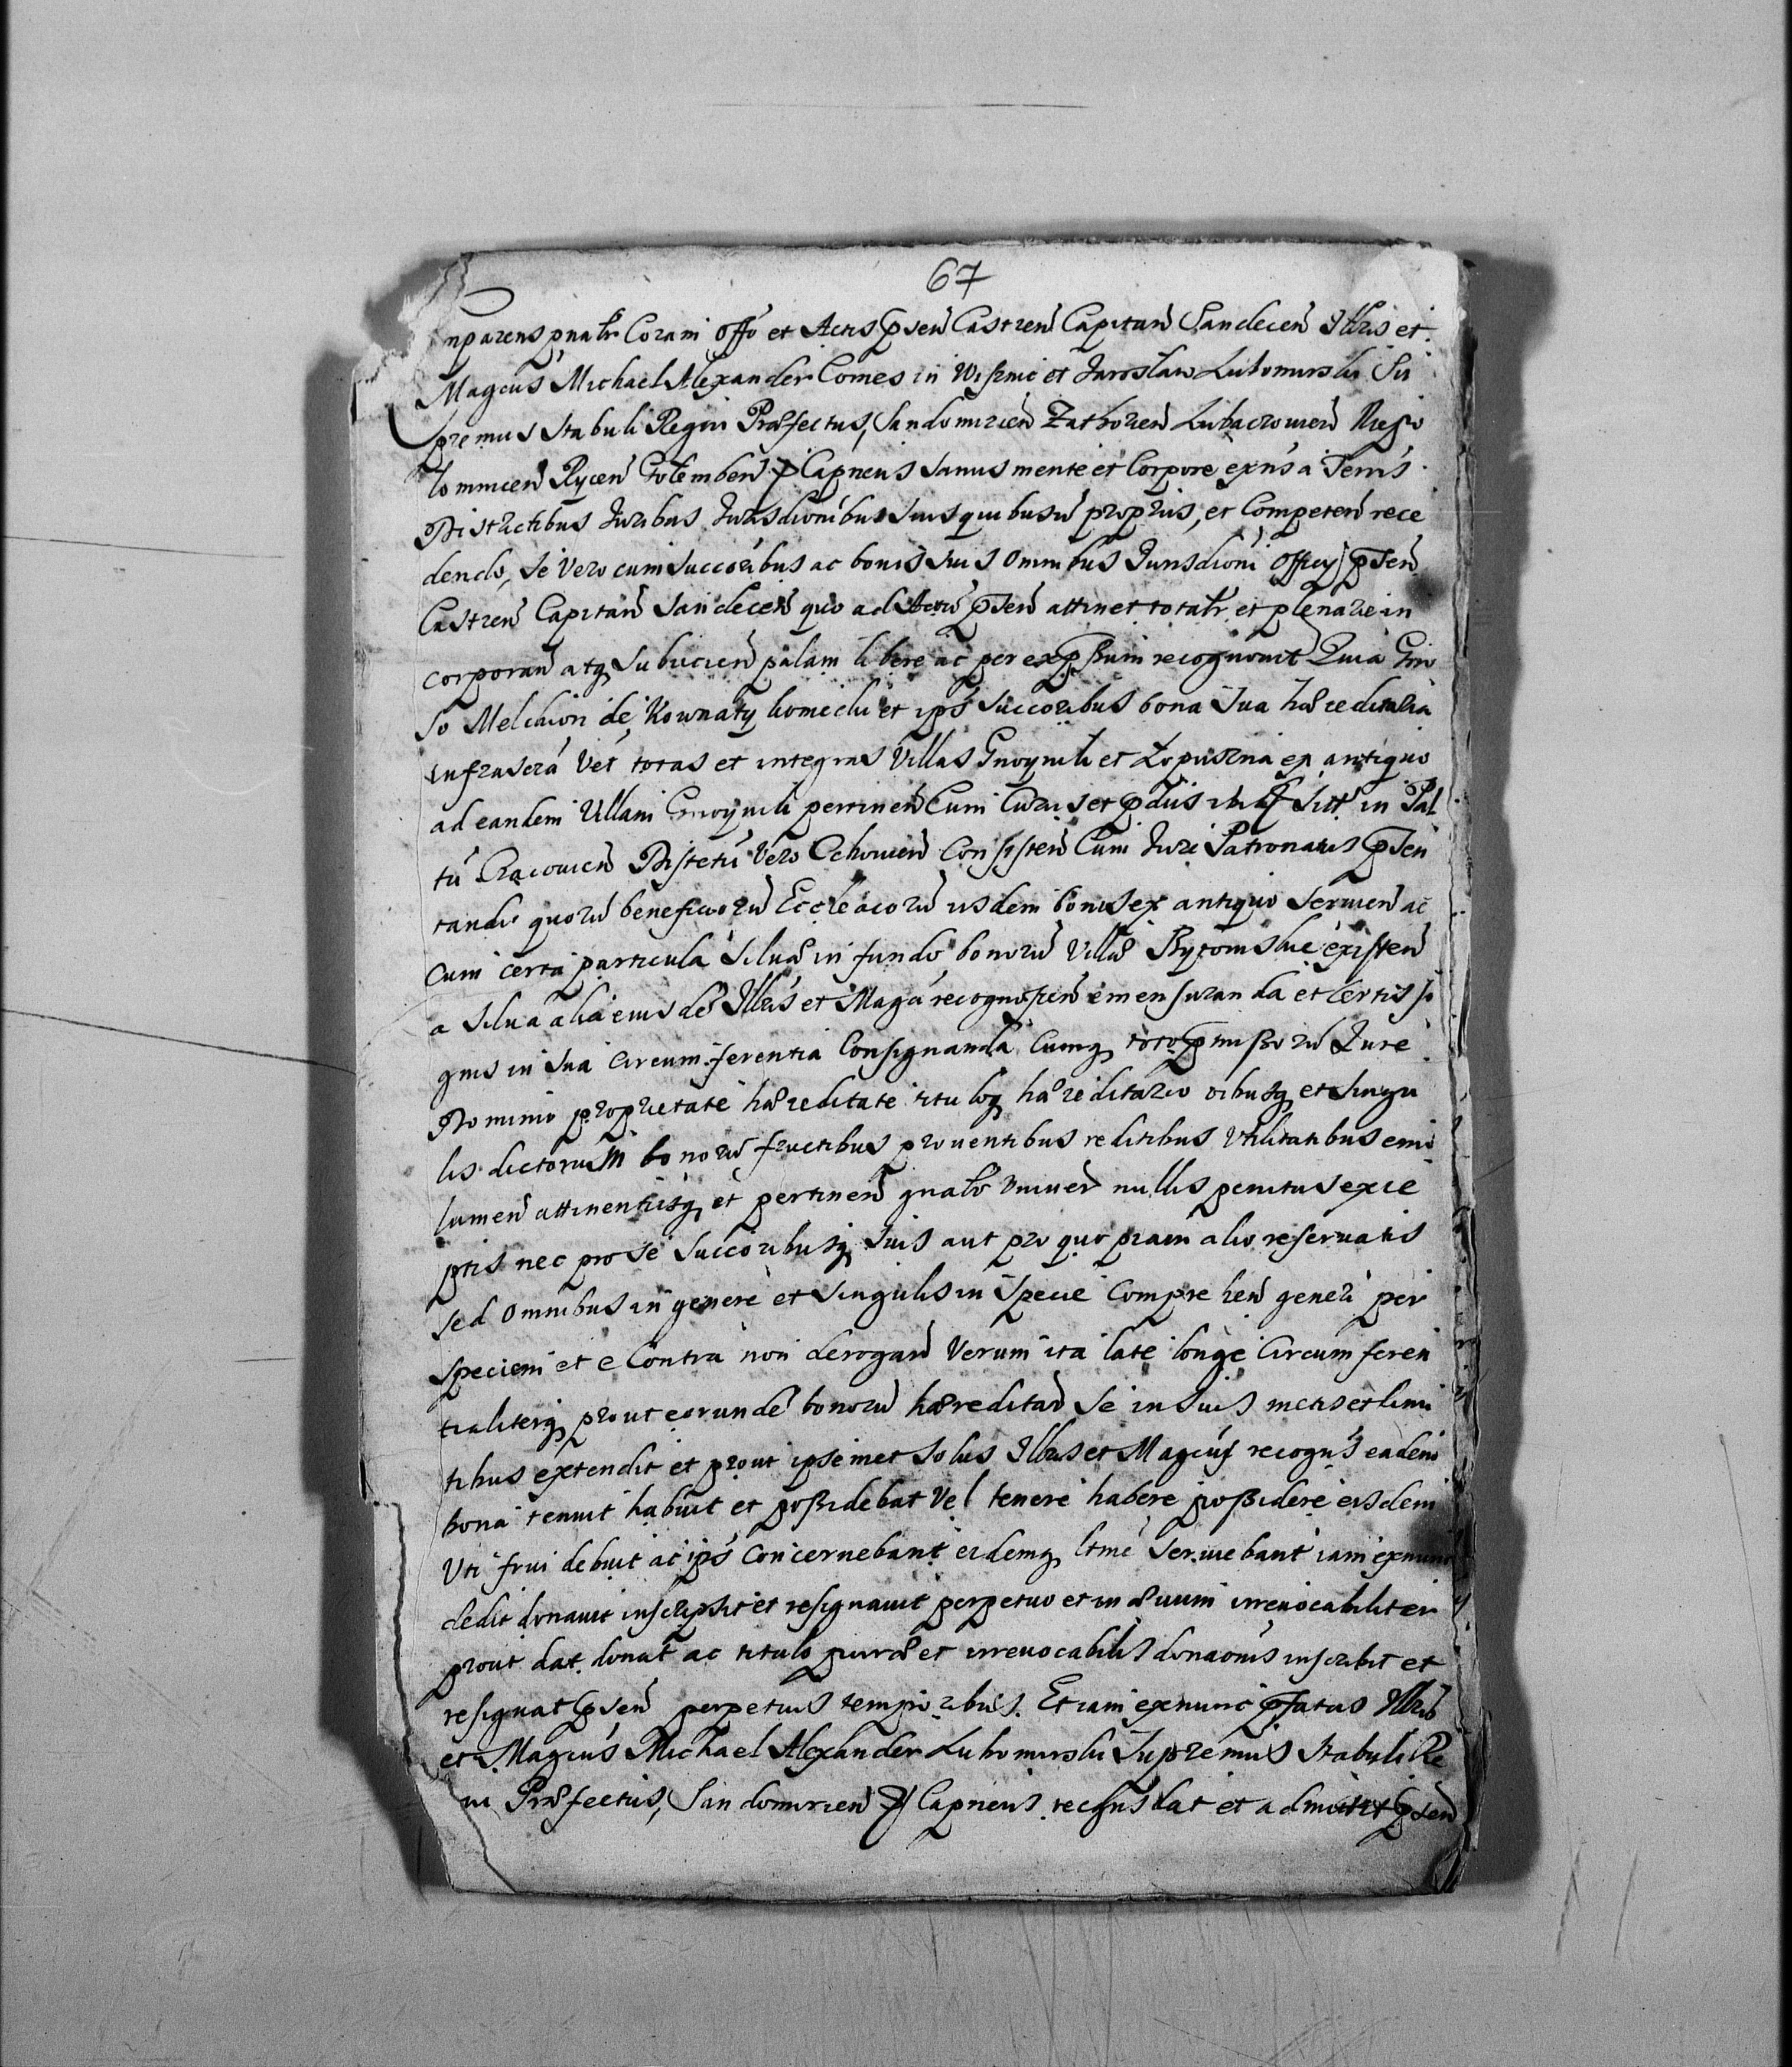 67
mparens pnalr Coram Offo et Actis pnsen Castren Capitan Sandecen Illris et
Magcus Michael Alexander Comes in Wisznic et Jaroslaw Lubomirski Su
premus Stabuli Regni Præfectus, Sandomirien Zathorien Lubaczowien Niepo
lomicen Rycen Golemben Capneus Sanus mente et Corpore exns a Terris
Districtibus Juribus Jurisdionibus suis quibusvis proprys, et Competen rece
dendo, se vero cum succoribus ac bonis suis omnibus Jurisdioni officy pnsen
Castren Capitan Sandecen quo ad Actu pnsen attinet totalr et plenarie in
corporan atq subicien palam libere ac per expssum recognovit Quia Gnro
so Melchiori de Kownaty Komecki et ips succoribus bona sua hæreditaria
infrascra vet totas et integras villas Gnoynik et Lopuszna ex antiquo
ad eandem villam Gnoynik pertinen Cum Curys et pdys ibi sitt in Pal
tu Cracovien Districtu vero Cchovien Consisten Cum Jure Patronatus pnsen
tandi quoru beneficioru Eccleacoru ysdem bonis ex antiquo servien ac
cum certa particula silvæ in fundo bonoru villæ Bytomskie existen
a silva alia eiusde Illris et Magci recognoscen emensuranda et certis si
gnis in sua circumferentia Consignanda Cumq toto pmissoru Jure
Dominio proprietate hæreditate tituloq hæreditario oibusq et singu
lis dictorum bonoru fructibus proventibus reditibus utilitatibus emo
lumen attinentysq et pertinen gnalr univer nullis penitus exce
ptis nec pro se succoribusq suis aut pro quopiam alio reservatis
sed omnibus in genere et singulis in specie Comprehen generi per
speciem et e Contra non derogan verum ita late longe Circumferen
tialiterq prout eorunde bonoru hæreditas se in suis metis et limi
tibus extendit et prout ipsemet solus Illris et Magcus recogns eadem
bona tenuit habuit et possidebat vel tenere habere possidere eisdem
uti frui debuit ac ips concernebant eidemq ltme serviebant iam exnunc
dedit donavit inscripsit et resignavit perpetuo et in ævum irrevocabiliter
prout dat donat ac titulo puræ et irrevocabilis donaonis inscribit et
resignat pnsen perpetuis temporibus. Et iam exnunc pfatus Illris
et Magcus Michael Alexander Lubomirski Supremus Stabuli Re
ni Præfectus, Sandomirien Capneus recogns dat et admittit pnsen